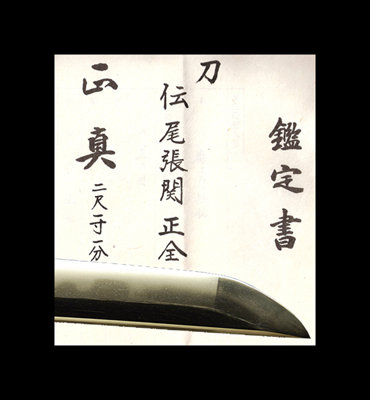 鑑定書
刀
伝尾張関正全
正真
二尺一寸一分